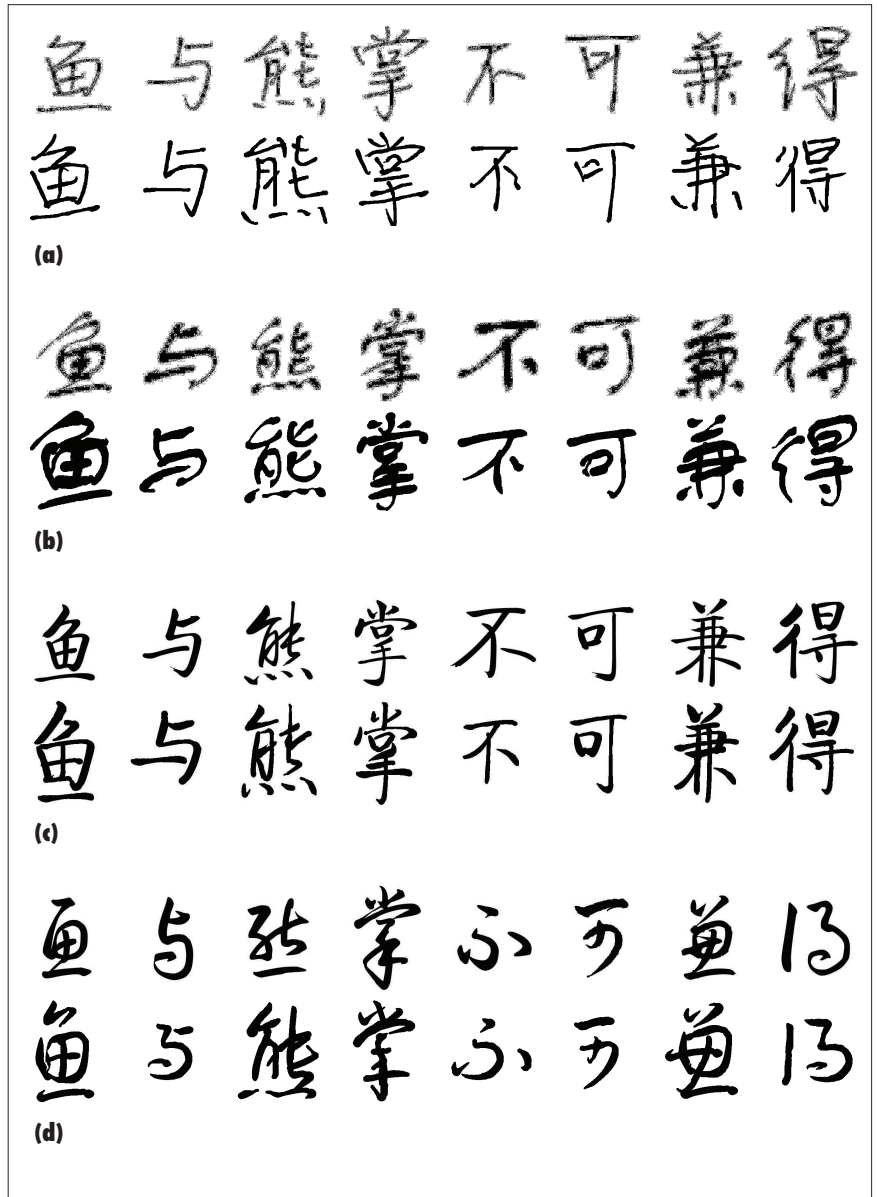 鱼与熊掌不可兼得
鱼与熊掌不可兼得
(a)
鱼与熊掌不可兼得
鱼与熊掌不可兼得
(b)
鱼与熊掌不可兼得
鱼与熊掌不可兼得
(c)
鱼与熊掌不可兼得
鱼与熊掌不可兼得
(d)